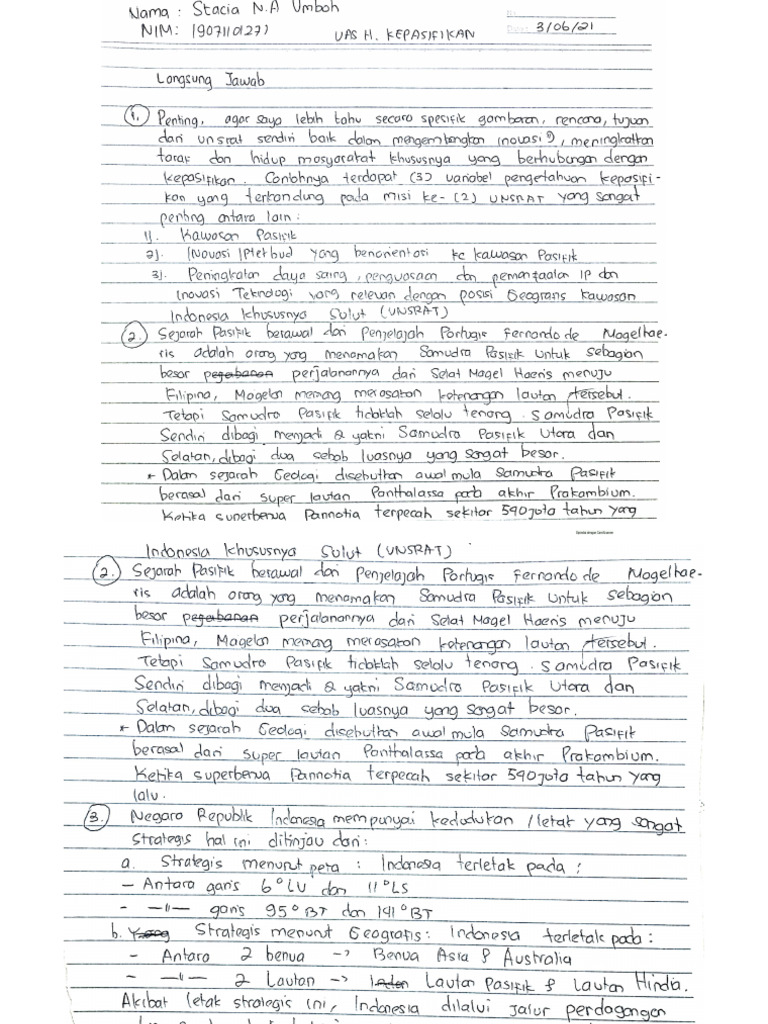 Nama : Stacia N.A Umboh
NIM: 19071101271
UAS H. KEPASIFIKAN
3/06/21
Langsung Jawab
1. Penting, agar saya lebih tahu secara spesifik gambaran, rencana, tujuan
dari unsrat sendiri baik dalam mengembangkan inovasi², meningkatkan
taraf dan hidup masyarakat khususnya yang berhubungan dengan
kepasifikan. Contohnya terdapat (3) variabel pengetahuan kepasifi-
kan yang terkandung pada misi ke-(2) UNSRAT yang sangat
penting antara lain :
1). Kawasan Pasifik
2). Inovasi IPtekbud yang berorientasi ke kawasan Pasifik
3). Peningkatan daya saing, penguasaan dan pemanfaatan IP dan
Inovasi Teknologi yang relevan dengan posisi Geografis kawasan
Indonesia khususnya Sulut (UNSRAT)
2. Sejarah Pasifik berawal dari Penjelajah Portugis Fernando de Magelhae-
ris adalah orang yang menamakan Samudra Pasifik untuk sebagian
besar perjalanannya dari Selat Magel Haens menuju
Filipina, Magelan memang merasakan ketenangan lautan tersebut.
Tetapi Samudra Pasifik tidaklah selalu tenang. Samudra Pasifik
Sendiri dibagi menjadi 2 yakni Samudra Pasifik Utara dan
Selatan, dibagi dua sebab luasnya yang sangat besar.
* Dalam sejarah Geologi disebutkan awal mula Samudra Pasifik
berasal dari super lautan Panthalassa pada akhir Prakambium.
Ketika superbenua Pannotia terpecah sekitar 540 juta tahun yang
Indonesia khususnya Sulut (UNSRAT)
2. Sejarah Pasifik berawal dari Penjelajah Portugis Fernando de Magelhae-
ris adalah orang yang menamakan Samudra Pasifik untuk sebagian
besar perjalanannya dari Selat Magel Haens menuju
Filipina, Magelan memang merasakan ketenangan lautan tersebut.
Tetapi Samudra Pasifik tidaklah selalu tenang. Samudra Pasifik
Sendiri dibagi menjadi 2 yakni Samudra Pasifik Utara dan
Selatan, dibagi dua sebab luasnya yang sangat besar.
* Dalam sejarah Geologi disebutkan awal mula Samudra Pasifik
berasal dari super lautan Panthalassa pada akhir Prakambium.
Ketika superbenua Pannotia terpecah sekitar 540 juta tahun yang
lalu.
3. Negara Republik Indonesia mempunyai kedudukan /letak yang sangat
Strategis hal ini ditinjau dari:
a. Strategis menurut peta : Indonesia terletak pada :
- Antara garis 6° LU dan 11° LS
- -"- garis 95° BT dan 141° BT
b. Strategis menurut Geografis: Indonesia terletak pada :
- Antara 2 benua -> Benua Asia & Australia
- -"- 2 Lautan -> Lautan Pasifik & Lautan Hindia.
Akibat letak strategis ini, Indonesia dilalui jalur perdagangan